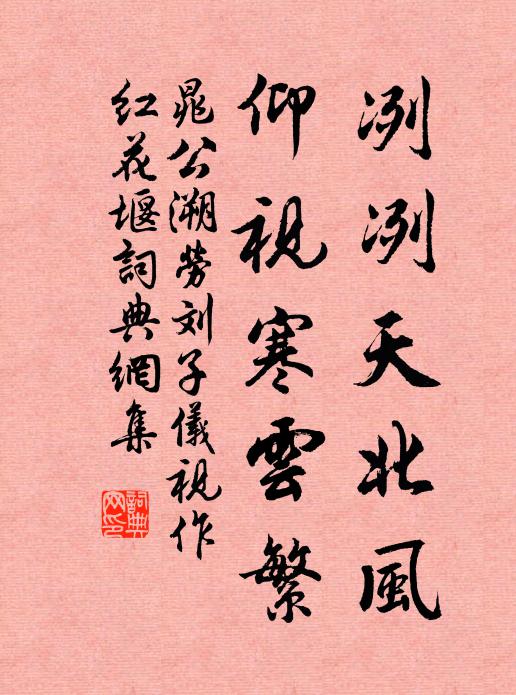 冽冽天北風
仰視寒雲繁
晁公溯劳刘子儀視作
红花堰詞典網集
詞典
网印